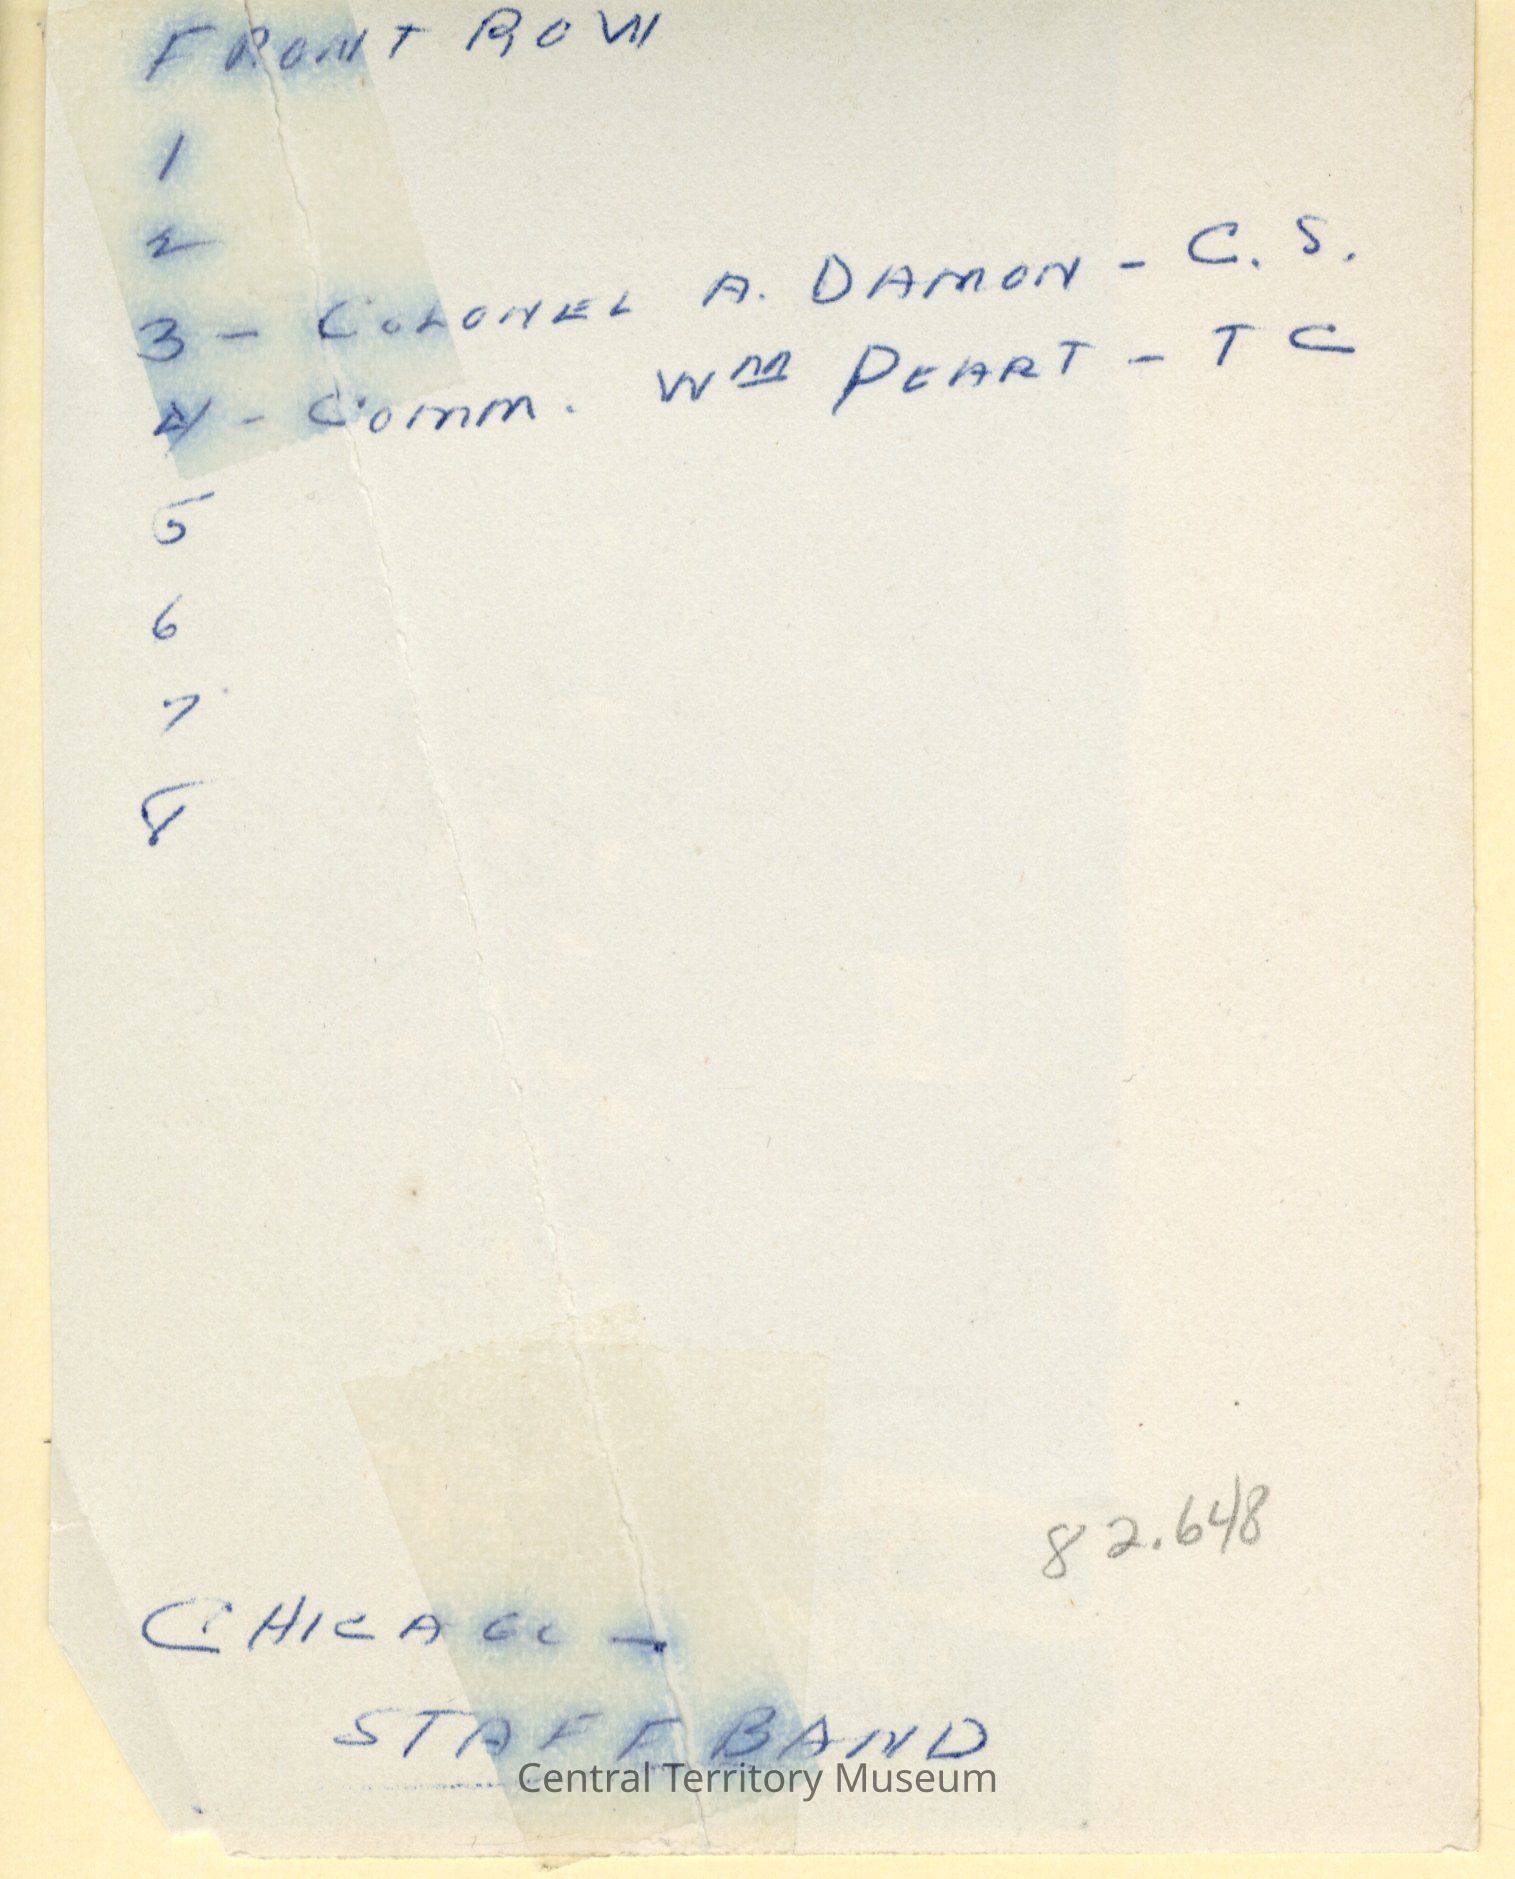 FRONT ROW
1
2
3 - COLONEL A. DAMON - C. S.
4 - COMM. Wm PEART - T C
5
6
7
8
82.648
CHICAGO -
STAFF BAND
Central Territory Museum